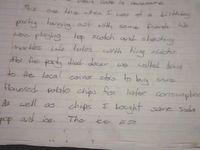 love cake is awesome
This one time when I was at a birthday
party hanging out with some friends we
were playing hop scotch and shooting
marbles into holes with tiny sticks
After the party died down we walked down
to the local corner store to buy some
flavoured potato chips for later consumption
As well as chips I bought some soda
pop and ice. The ice